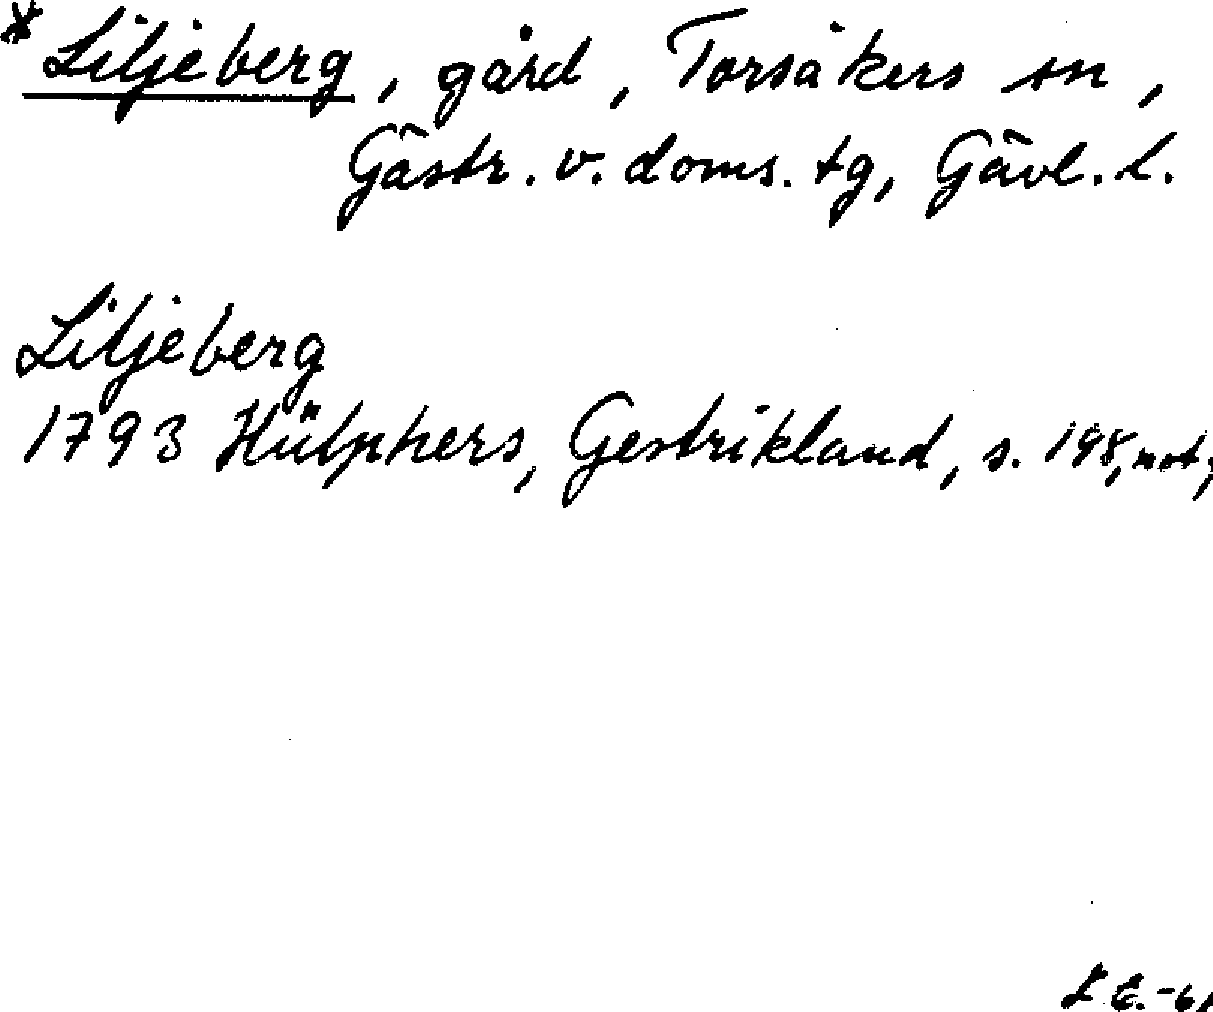 * Liljeberg, gård, Torsåkers sn,
Gästr. v. doms. tg, Gävl. l.
Liljeberg
1793 Hülphers, Gestrikland, s. 198, not,